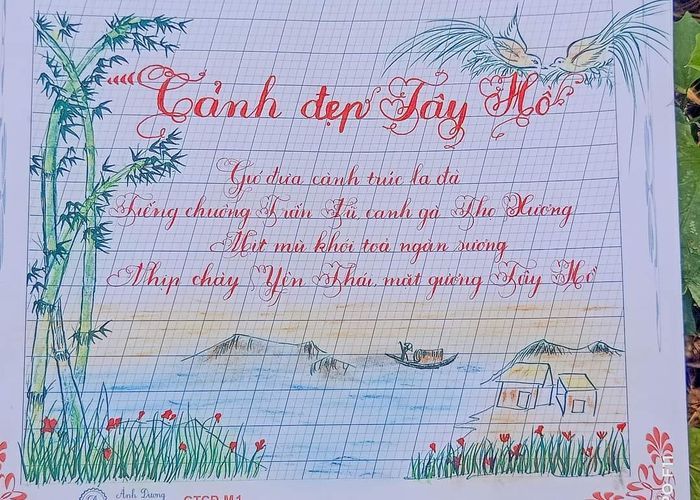 Cảnh đẹp Tây Hồ
Gió đưa cành trúc la đà
Tiếng chuông Trấn Vũ canh gà Thọ Xương
Mịt mù khói toả ngàn sương
Nhịp chày Yên Thái mặt gương Tây Hồ
Ánh Dương
CTGD M1